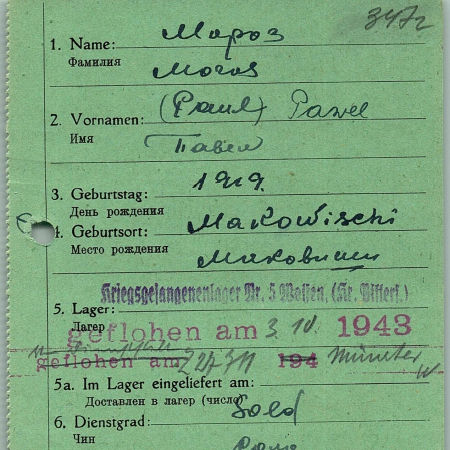 347г
1. Name: Мороз
Фамилия
Moros
2. Vornamen: (Paul) Pawel
Имя
Павел
3. Geburtstag: 1919.
День рождения
4. Geburtsort: Makowischi
Место рождения
Маковищи
Kriegsgefangenenlager Nr. 5 Wolfen, (Kr. Bitterf.)
5. Lager:
Лагерь
geflohen am 3. 1943
geflohen am 194 Münster
5a. Im Lager eingeliefert am:
Доставлен в лагерь (число)
6. Dienstgrad: Sold
Чин